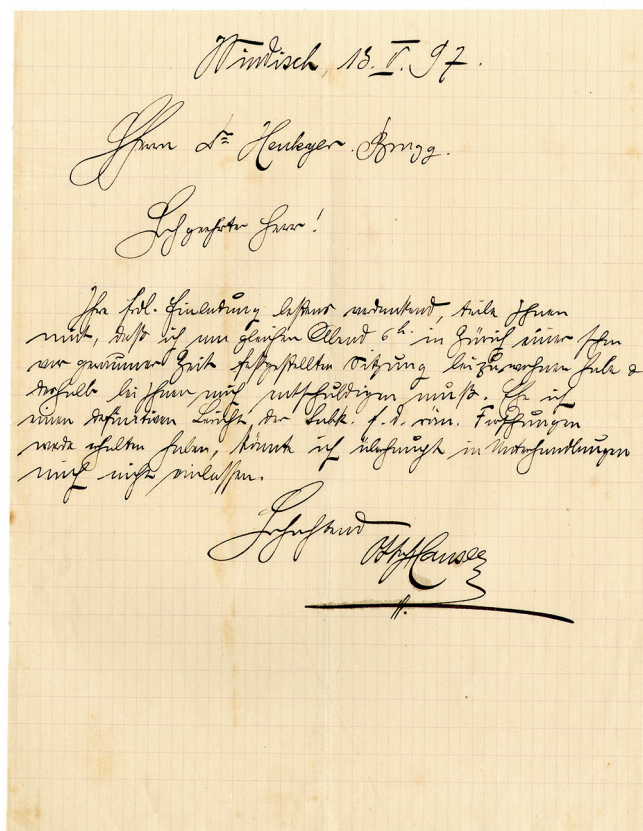 Windisch, 13. V. 97.
Herrn Dr. Henkyer. Brugg.
Hochgeehrter Herr!
Ihre frdl. Einladung bestens verdankend, teile Ihnen
mit, daß ich am gleichen Abend 6 h. in Zürich einer schon
vor geraumer Zeit festgestellten Sitzung beizuwohnen habe &
deshalb bei Ihnen mich entschuldigen muß. Ehe ich
einen definitiven Bericht, der Subk. f. d. röm. Forschungen
werde erhalten haben, könnte ich überhaupt in Unterhandlungen
mich nicht einlassen.
Hochachtend
Otto Hauser